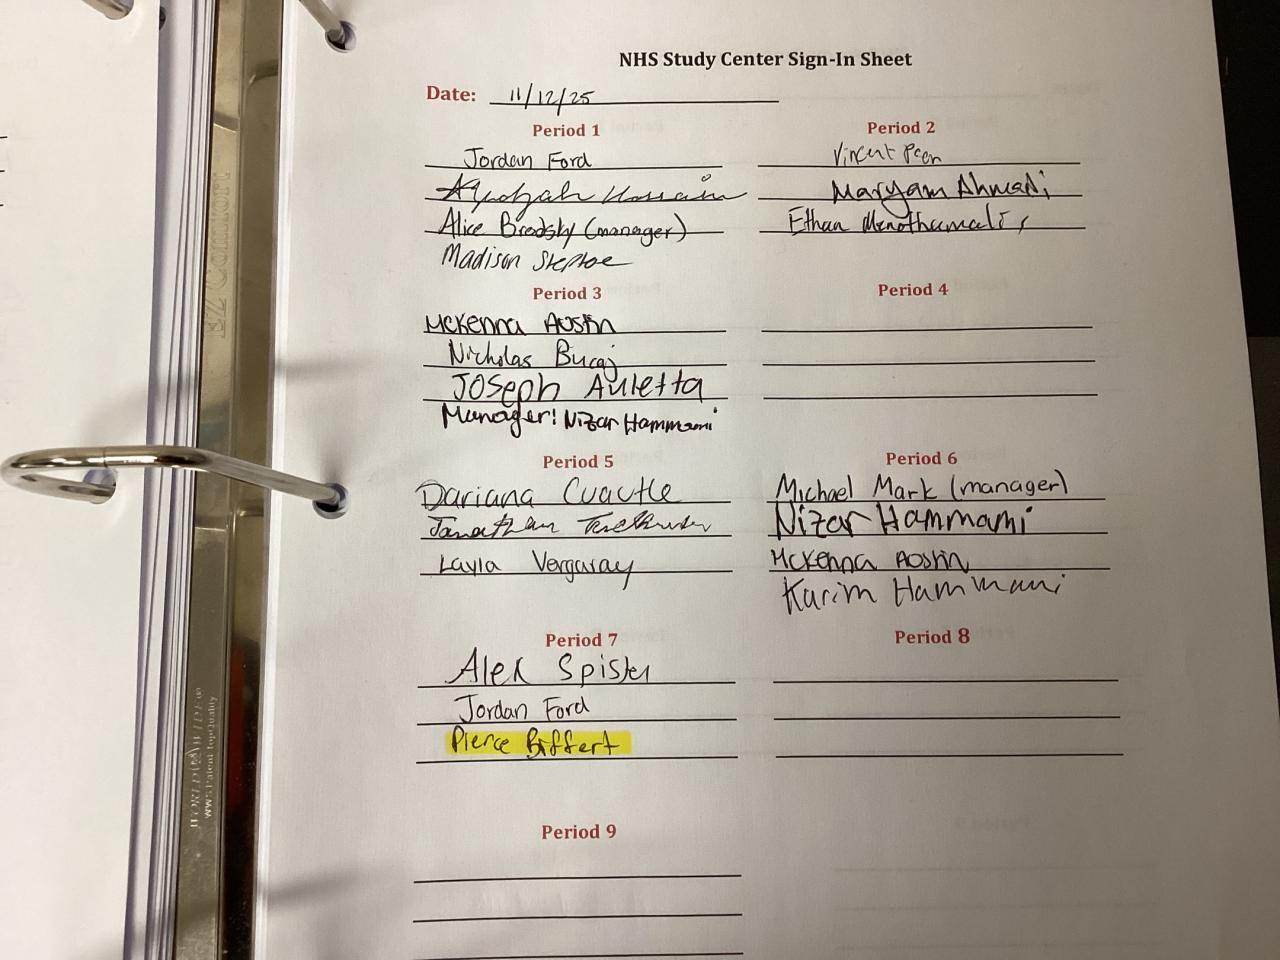 NHS Study Center Sign-In Sheet
Date: 11/12/25
Period 1
Jordan Ford
Hossain
Alice Brodsky (manager)
Madison Steptoe
Period 2
Vincent
Maryam Ahmadi
Ethan
Period 3
McKenna Austin
Nicholas Bucaj
Joseph Auletta
Manager: Nizar Hammami
Period 4
Period 5
Dariana Cuautle
Jonathan
Layla Vergaray
Period 6
Michael Mark (manager)
Nizar Hammami
McKenna Austin
Karim Hammami
Period 7
Alex
Jordan Ford
Pierce Biffert
Period 8
Period 9
EZ Comfort
WORLD WIDE